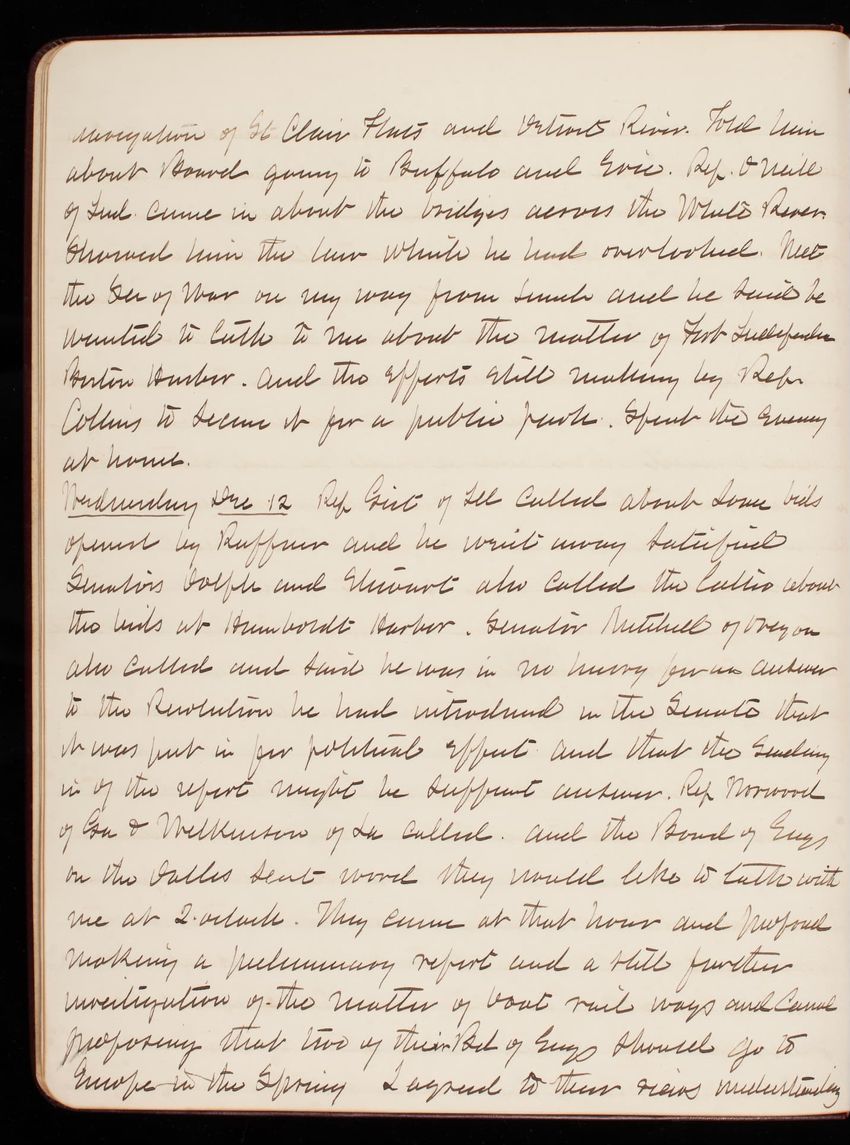 navigation of St Clair Flats and Detroit River. Told him
about Board going to Buffalo and Erie. Rep. O'Neill
of Ind. came in about the bridges across the White River.
Showed him the law which he had overlooked. Met
the Sec of War on my way from lunch and he said he
wanted to talk to me about the matter of Fort Independen
Boston Harbor. and the efforts still making by Rep.
Collins to secure it for a public park. Spent the evening
at home.
Wednesday Dec 12 Rep of Ill called about some bids
opened by Ruffner and he went away satisfied
Senators Dolph and Stewart also called the latter about
the bids at Humboldt Harbor. Senator Mitchell of Oregon
also called and said he was in no hurry for an answer
to the Resolution he had introduced in the Senate that
it was put in for political effect and that the sending
in of the report might be sufficient answer. Rep Norwood
of Ga & Wilkinson of La called. and the Board of Engs
on the Dalles sent word they would like to talk with
me at 2.oclock. They came at that hour and proposed
making a preliminary report and a still further
investigation of the matter of boat rail ways and Canal
proposing that two of their Bd of Engs should go to
Europe in the Spring I agreed to their views understanding